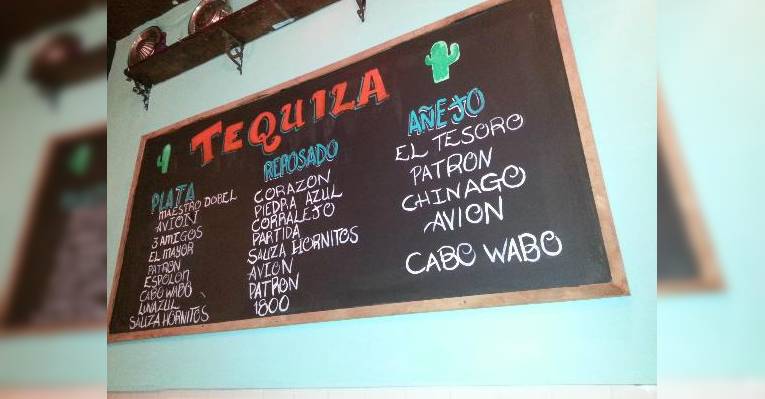 TEQUIZA
PLATA
MAESTRO DOBEL
AVION
3 AMIGOS
EL MAYOR
PATRON
ESPOLON
CABO WABO
LUNAZUL
SAUZA HORNITOS
REPOSADO
CORAZON
PIEDRA AZUL
CORRALEJO
PARTIDA
SAUZA HORNITOS
AVION
PATRON
1800
AÑEJO
EL TESORO
PATRON
CHINAGO
AVION
CABO WABO